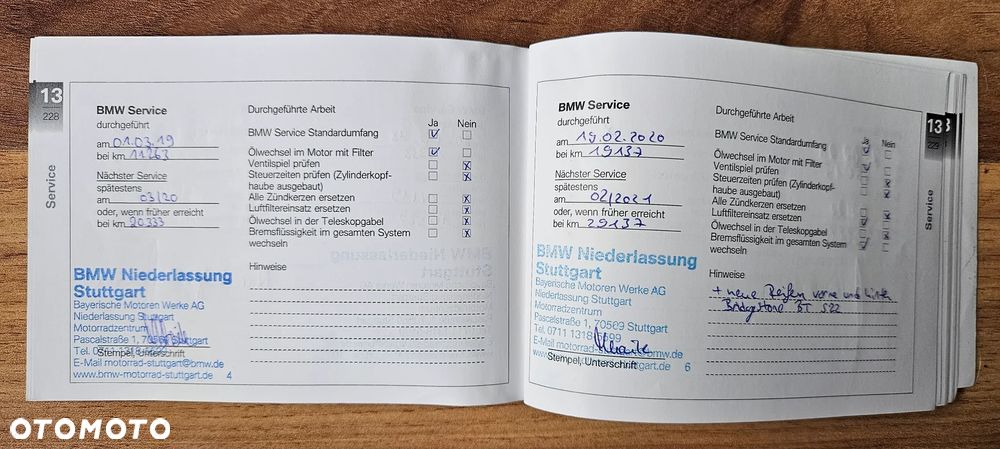 13
228
Service
BMW Service
durchgeführt
am 01.03.19
bei km 11263
Nächster Service
spätestens
am 03/20
oder, wenn früher erreicht
bei km 20333
BMW Niederlassung
Stuttgart
Bayerische Motoren Werke AG
Niederlassung Stuttgart
Motorradzentrum
Pascalstraße 1, 70569 Stuttgart
Tel. 0711 1318
Stempel, Unterschrift
E-Mail motorrad-stuttgart@bmw.de
www.bmw-motorrad-stuttgart.de 4
Durchgeführte Arbeit
Ja Nein
BMW Service Standardumfang
Ölwechsel im Motor mit Filter
Ventilspiel prüfen
Steuerzeiten prüfen (Zylinderkopf-
haube ausgebaut)
Alle Zündkerzen ersetzen
Luftfiltereinsatz ersetzen
Ölwechsel in der Teleskopgabel
Bremsflüssigkeit im gesamten System
wechseln
Hinweise
BMW Service
durchgeführt
am 19.02.2020
bei km 19137
Nächster Service
spätestens
am 02/2021
oder, wenn früher erreicht
bei km 29137
BMW Niederlassung
Stuttgart
Bayerische Motoren Werke AG
Niederlassung Stuttgart
Motorradzentrum
Pascalstraße 1, 70569 Stuttgart
Tel. 0711 1318
E-Mail motorrad-stuttgart@bmw.de
Stempel, Unterschrift
6
Durchgeführte Arbeit
Ja Nein
BMW Service Standardumfang
Ölwechsel im Motor mit Filter
Ventilspiel prüfen
Steuerzeiten prüfen (Zylinderkopf-
haube ausgebaut)
Alle Zündkerzen ersetzen
Luftfiltereinsatz ersetzen
Ölwechsel in der Teleskopgabel
Bremsflüssigkeit im gesamten System
wechseln
Hinweise
+ neue Reifen vorne und hinten
Bridgestone BT
13
229
Service
OTOMOTO